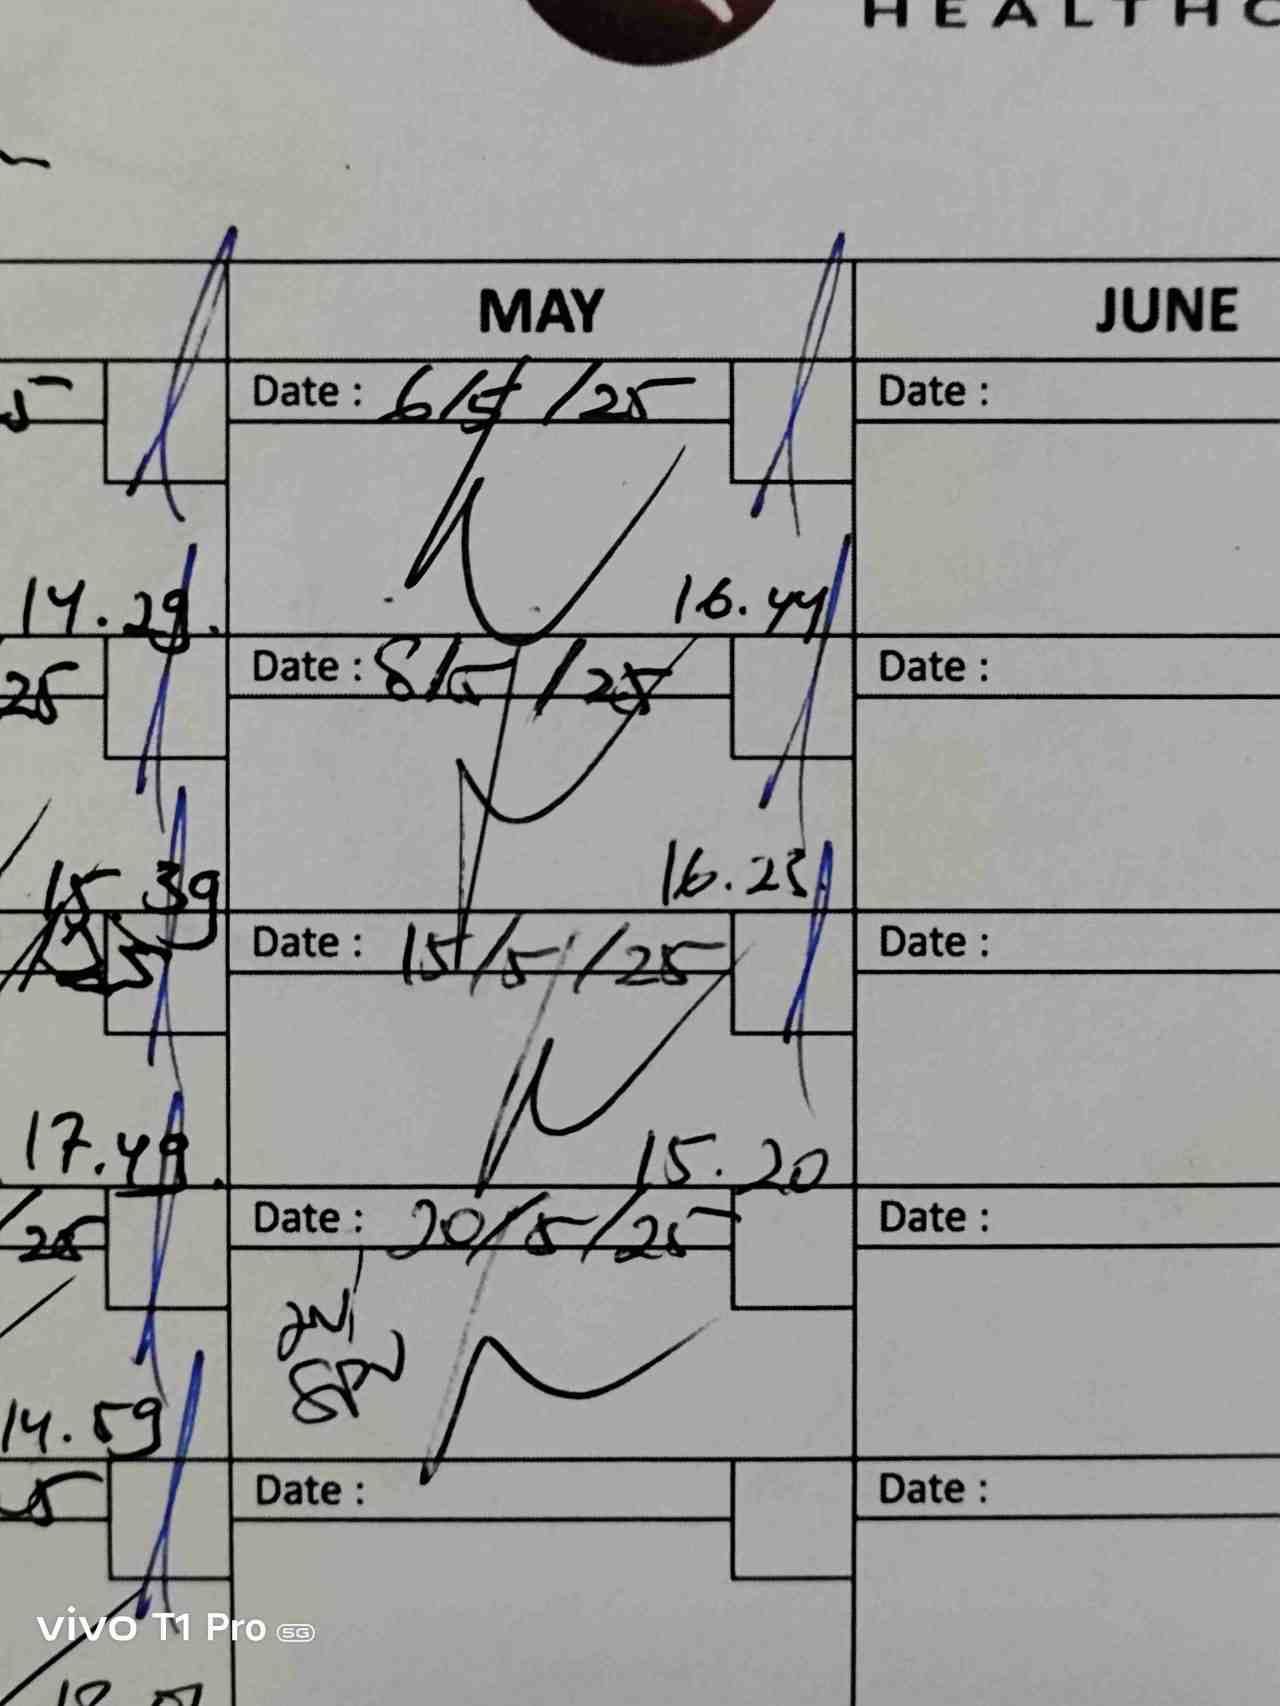 HEALTHC
MAY
JUNE
5
Date : 6/5/25
Date :
14.29.
16.44
25
Date : 8/5/25
Date :
15 39
16.23
25
Date : 15/5/25
Date :
17.49.
15.20
/25
Date : 20/5/25
Date :
14.59
Date :
Date :
vivo T1 Pro 5G